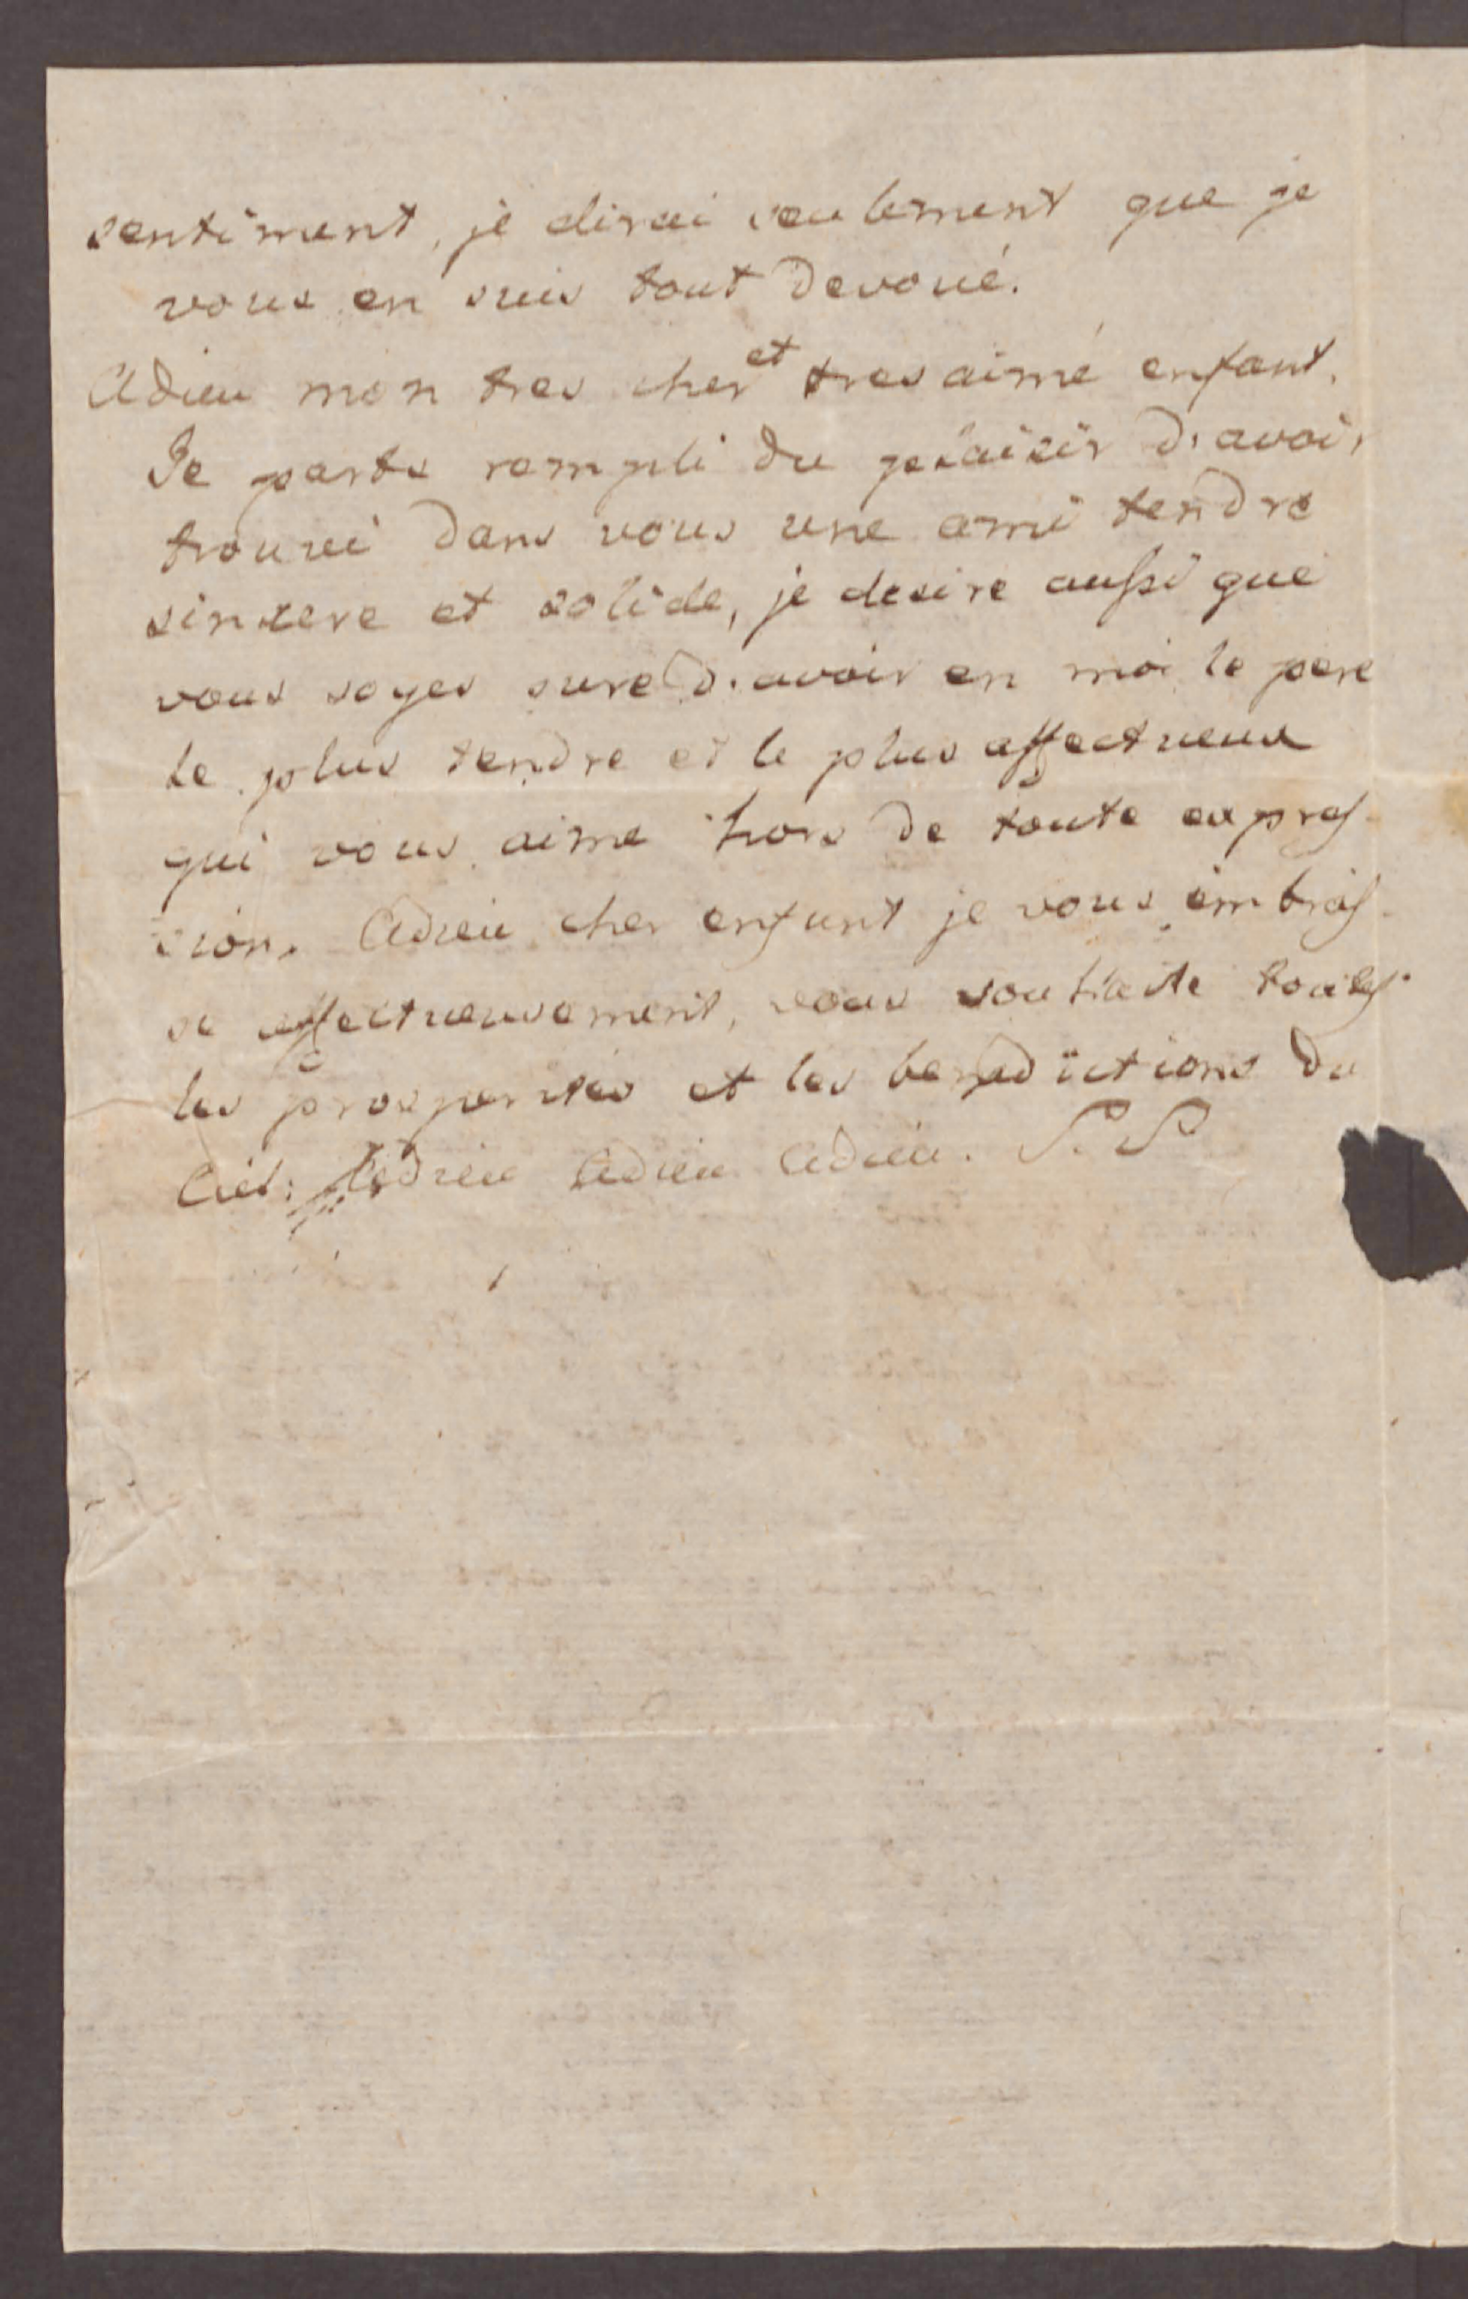 sentiment, je dirai seulement que je
vous en suis tout devoué.
Adieu mon tres cher et tres aimé enfant.
Je parts rempli du plaisir d'avoir
trouvé dans vous une ami tendre
sincere et solide, je desire aussi que
vous soyes sure d'avoir en moi le pere
le plus tendre et le plus affectueux
qui vous aime hors de toute expres-
sion. Adieu cher enfant je vous embras-
se affectueusement, vous souhaite toutes
les prosperités et les benedictions du
Ciel: Adieu Adieu Adieu. P.P